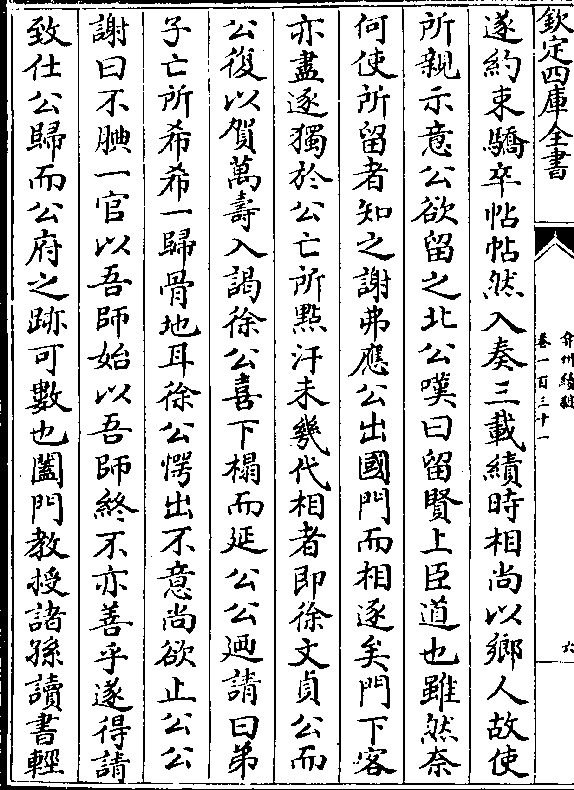 欽定四庫全書
弇州續稿
卷一百三十一
六
遂約束驕卒帖帖然入奏三載績時相尚以鄉人故使
所親示意公欲留之北公嘆曰留賢上臣道也雖然奈
何使所留者知之謝弗應公出國門而相逐矣門下客
亦盡逐獨於公亡所點汗未幾代相者即徐文貞公而
公復以賀萬壽入謁徐公喜下榻而延公公廼請曰弟
子亡所希希一歸骨地耳徐公愕出不意尚欲止公公
謝曰不腆一官以吾師始以吾師終不亦善乎遂得請
致仕公歸而公府之跡可數也闔門教授諸孫讀書輕